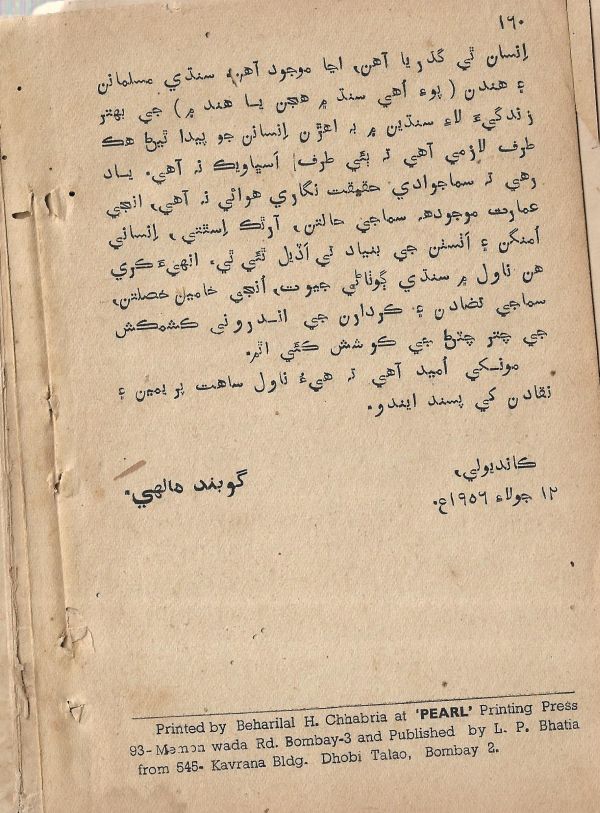 ١٦٠
اِنسان ٿي گذريا آهن، اڃا موجود آهن. سنڌي مسلمانن
۽ هندن ( پوءِ اُهي سنڌ ۾ هجن يا هند ۾ ) جي بهتر
زندگيءَ لاءِ سنڌين ۾ به اهڙن اِنسانن جو پيدا ٿيڻ هڪ
طرف لازمي آهي ته ٻئي طرف اَسڀاويڪ نه آهي. ياد
رهي ته سماجوادي حقيقت نگاري هوائي نه آهي، انجي
عمارت موجوده سماجي حالتن، آرٿڪ اِسٿتي، اِنساني
اُمنگن ۽ اَڻسڻن جي بنياد تي اَڏيل ٿئي ٿي. انهيءَ ڪري
هن ناول ۾ سنڌي ڳوٺاڻي جيوت، اُنجي خاصين خصلتن،
سماجي تضادن ۽ ڪردارن جي اندروني ڪشمڪش
جي چٽر چٽڻ جي ڪوشش ڪئي اٿم.
مونکي اُميد آهي ته هيءُ ناول ساهت پريمين ۽
نقادن کي پسند ايندو.
ڪانديولي،
١٢ جولاءِ ١٩٥٦ع.
گوبند مالهي.
Printed by Beharilal H. Chhabria at 'PEARL' Printing Press
93- Memon wada Rd. Bombay-3 and Published by L. P. Bhatia
from 545- Kavrana Bldg. Dhobi Talao, Bombay 2.